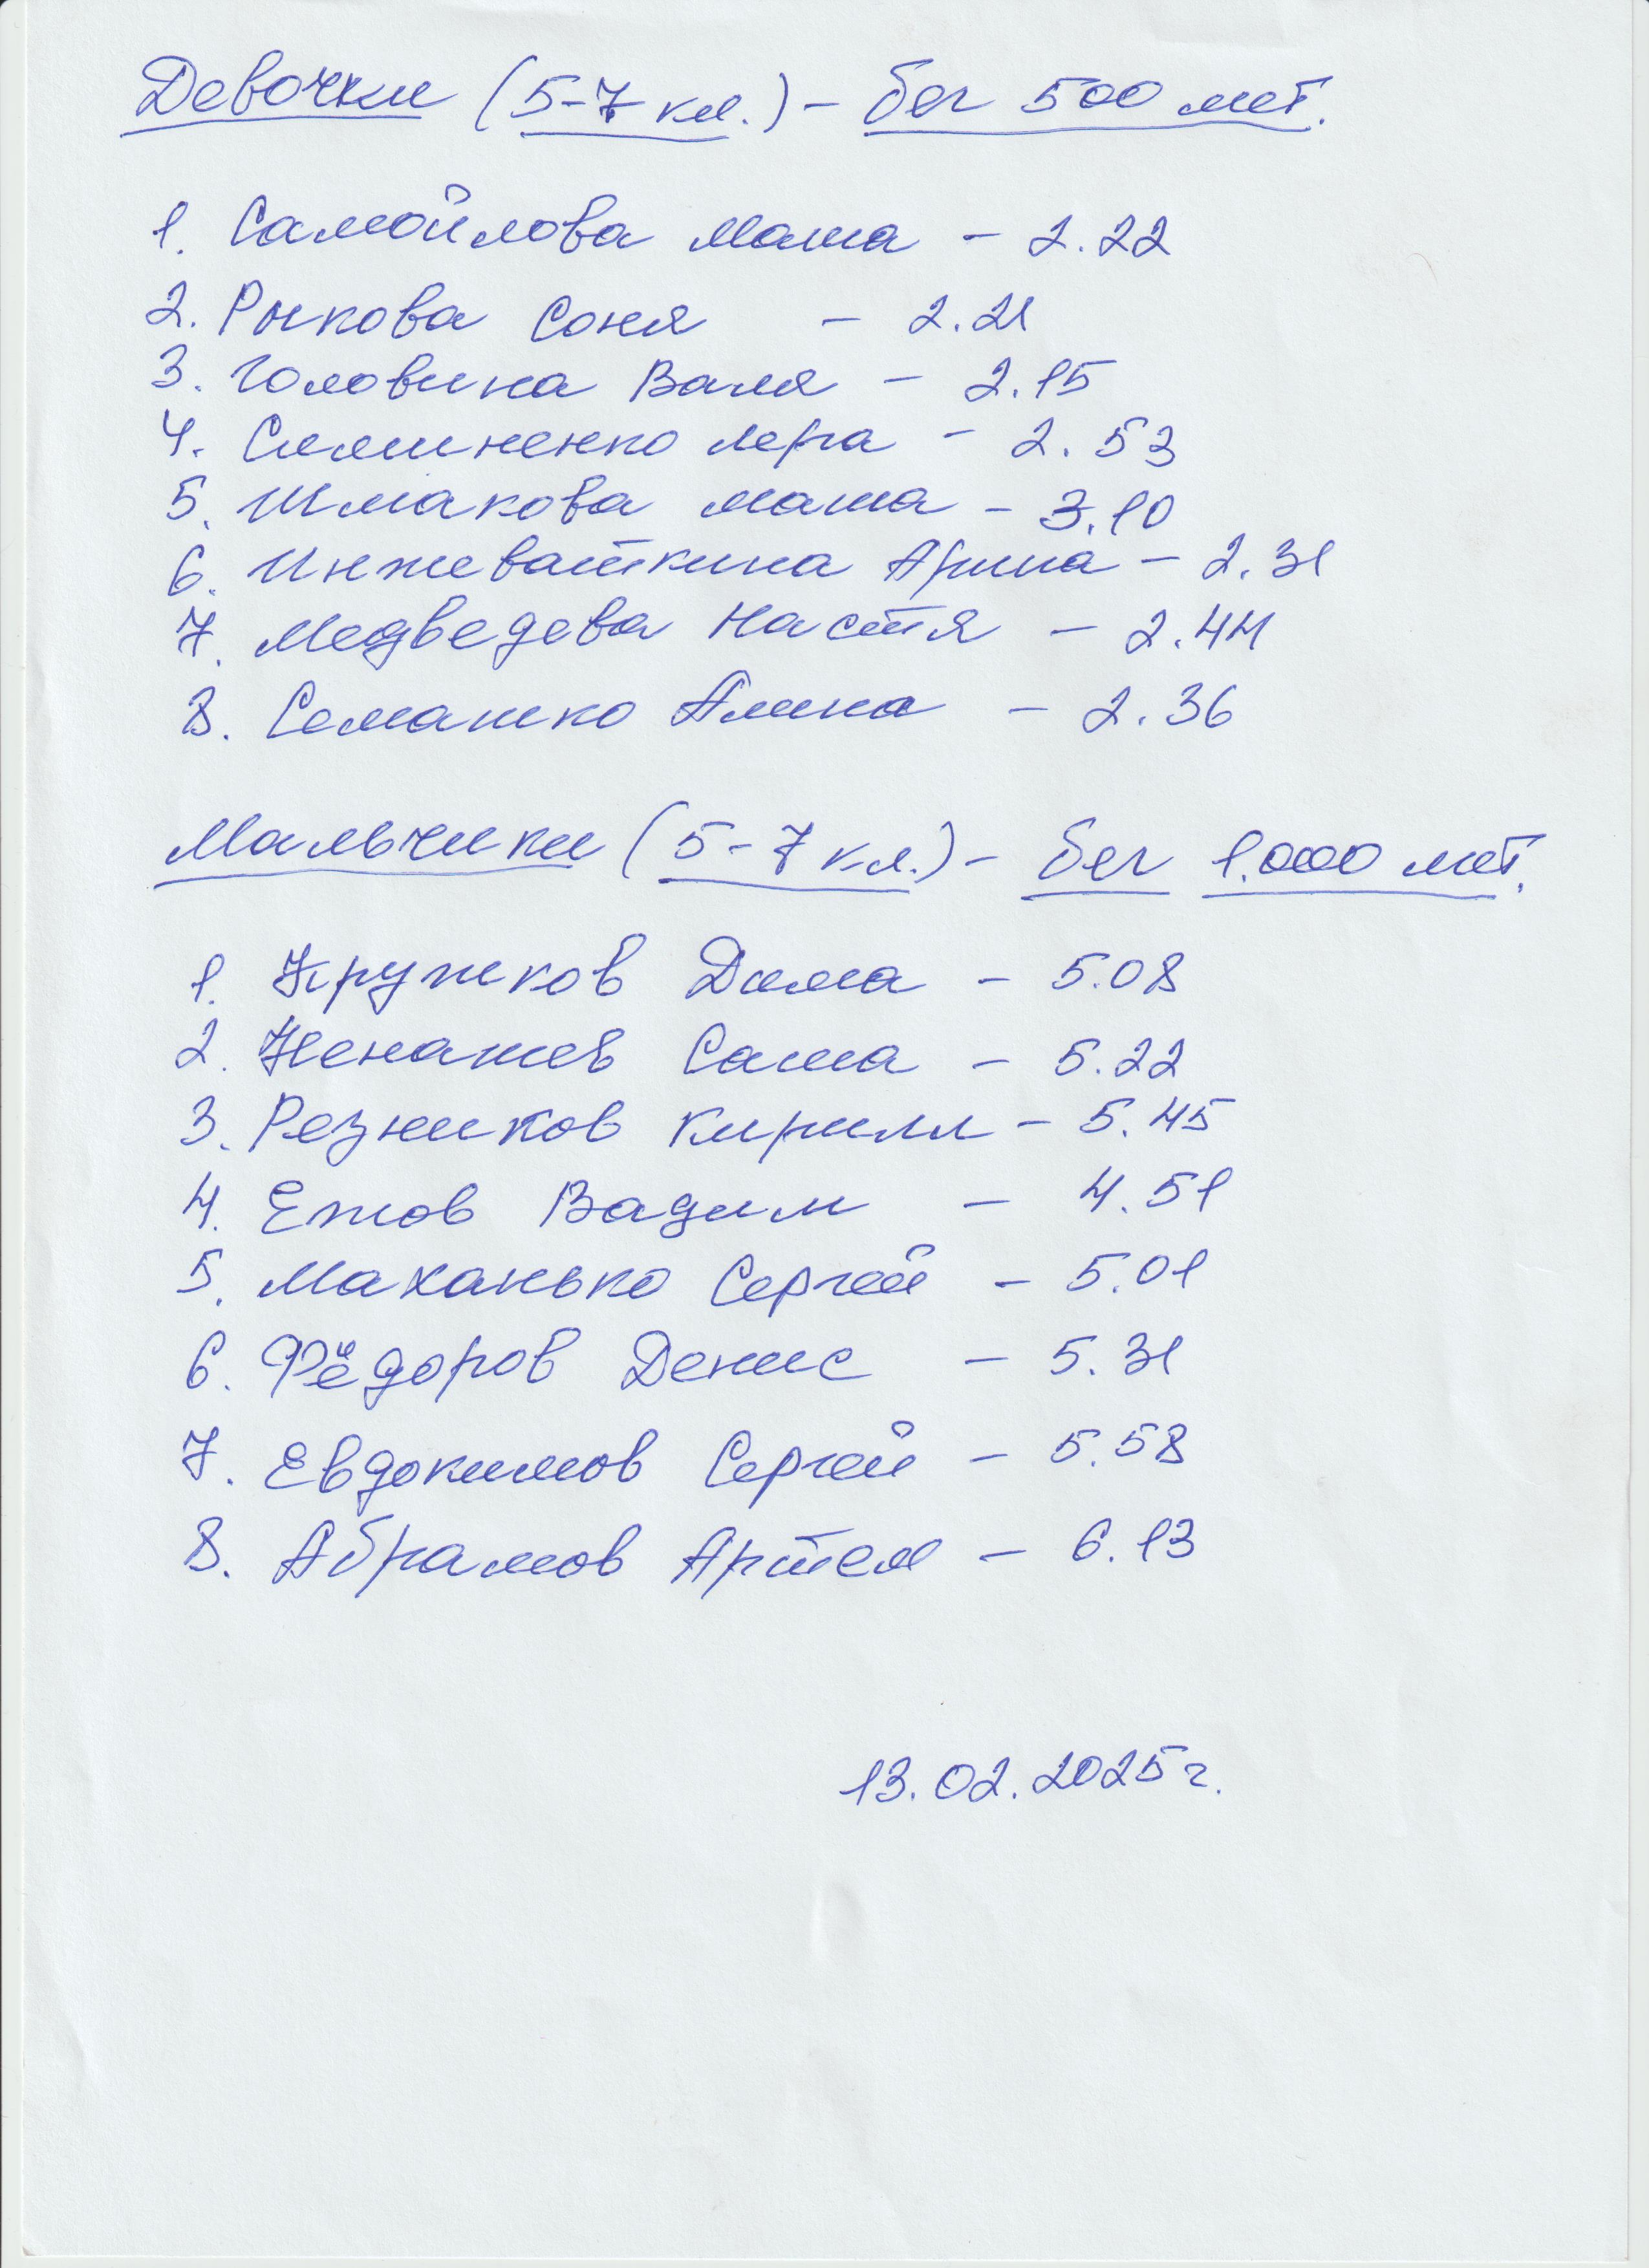 Девочки (5-7 кл.) - бег 500 мет.
1. Самойлова Маша - 2.22
2. Рыкова Соня - 2.21
3. Головина Валя - 2.15
4. Симиненко Лера - 2.53
5. Шмакова Маша - 3.10
6. Инжеваткина Арина - 2.31
7. Медведева Настя - 2.44
8. Семашко Алина - 2.36
Мальчики (5-7 кл.) - бег 1.000 мет.
1. Кружков Дима - 5.08
2. Ненашев Саша - 5.22
3. Резников Кирилл - 5.45
4. Ежов Вадим - 4.51
5. Маханько Сергей - 5.01
6. Фёдоров Денис - 5.31
7. Евдокимов Сергей - 5.58
8. Абрамов Артем - 6.13
13.02.2025г.